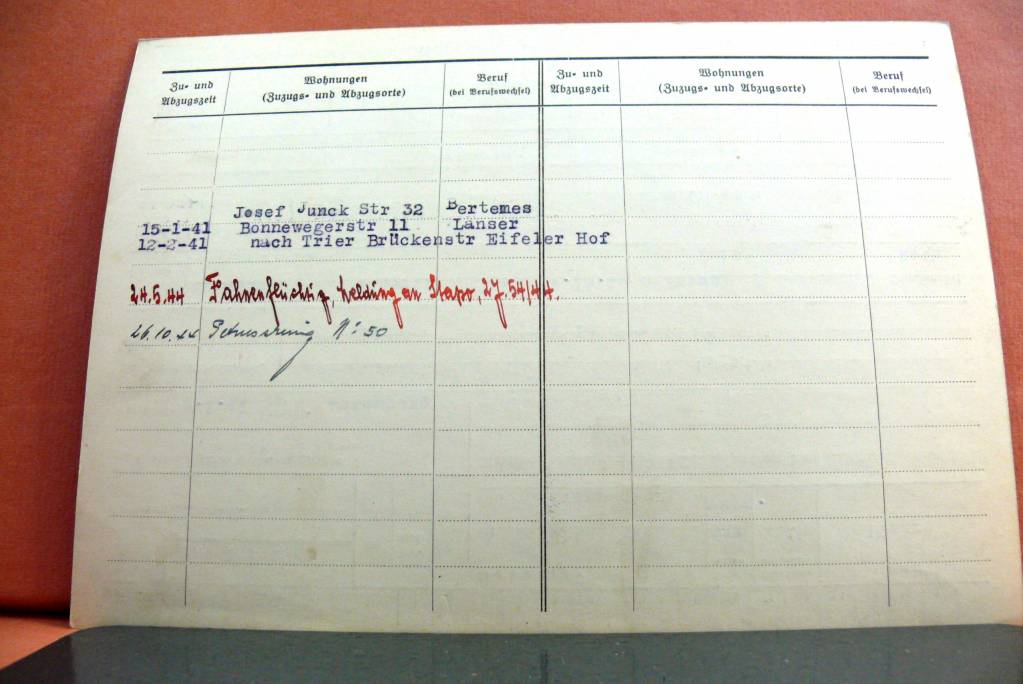 Zu- und Abzugszeit
Wohnungen
(Zuzugs- und Abzugsorte)
Beruf
(bei Berufswechsel)
Zu- und Abzugszeit
Wohnungen
(Zuzugs- und Abzugsorte)
Beruf
(bei Berufswechsel)
Josef Junck Str 32 Bertemes
15-1-41 Bonnewegerstr 11 Lanser
12-2-41 nach Trier Brückenstr Eifeler Hof
24.5.44 Fahnenflüchtig, Meldung an Stapo, 27.54/44.
26.10.44 Petrussring N° 50